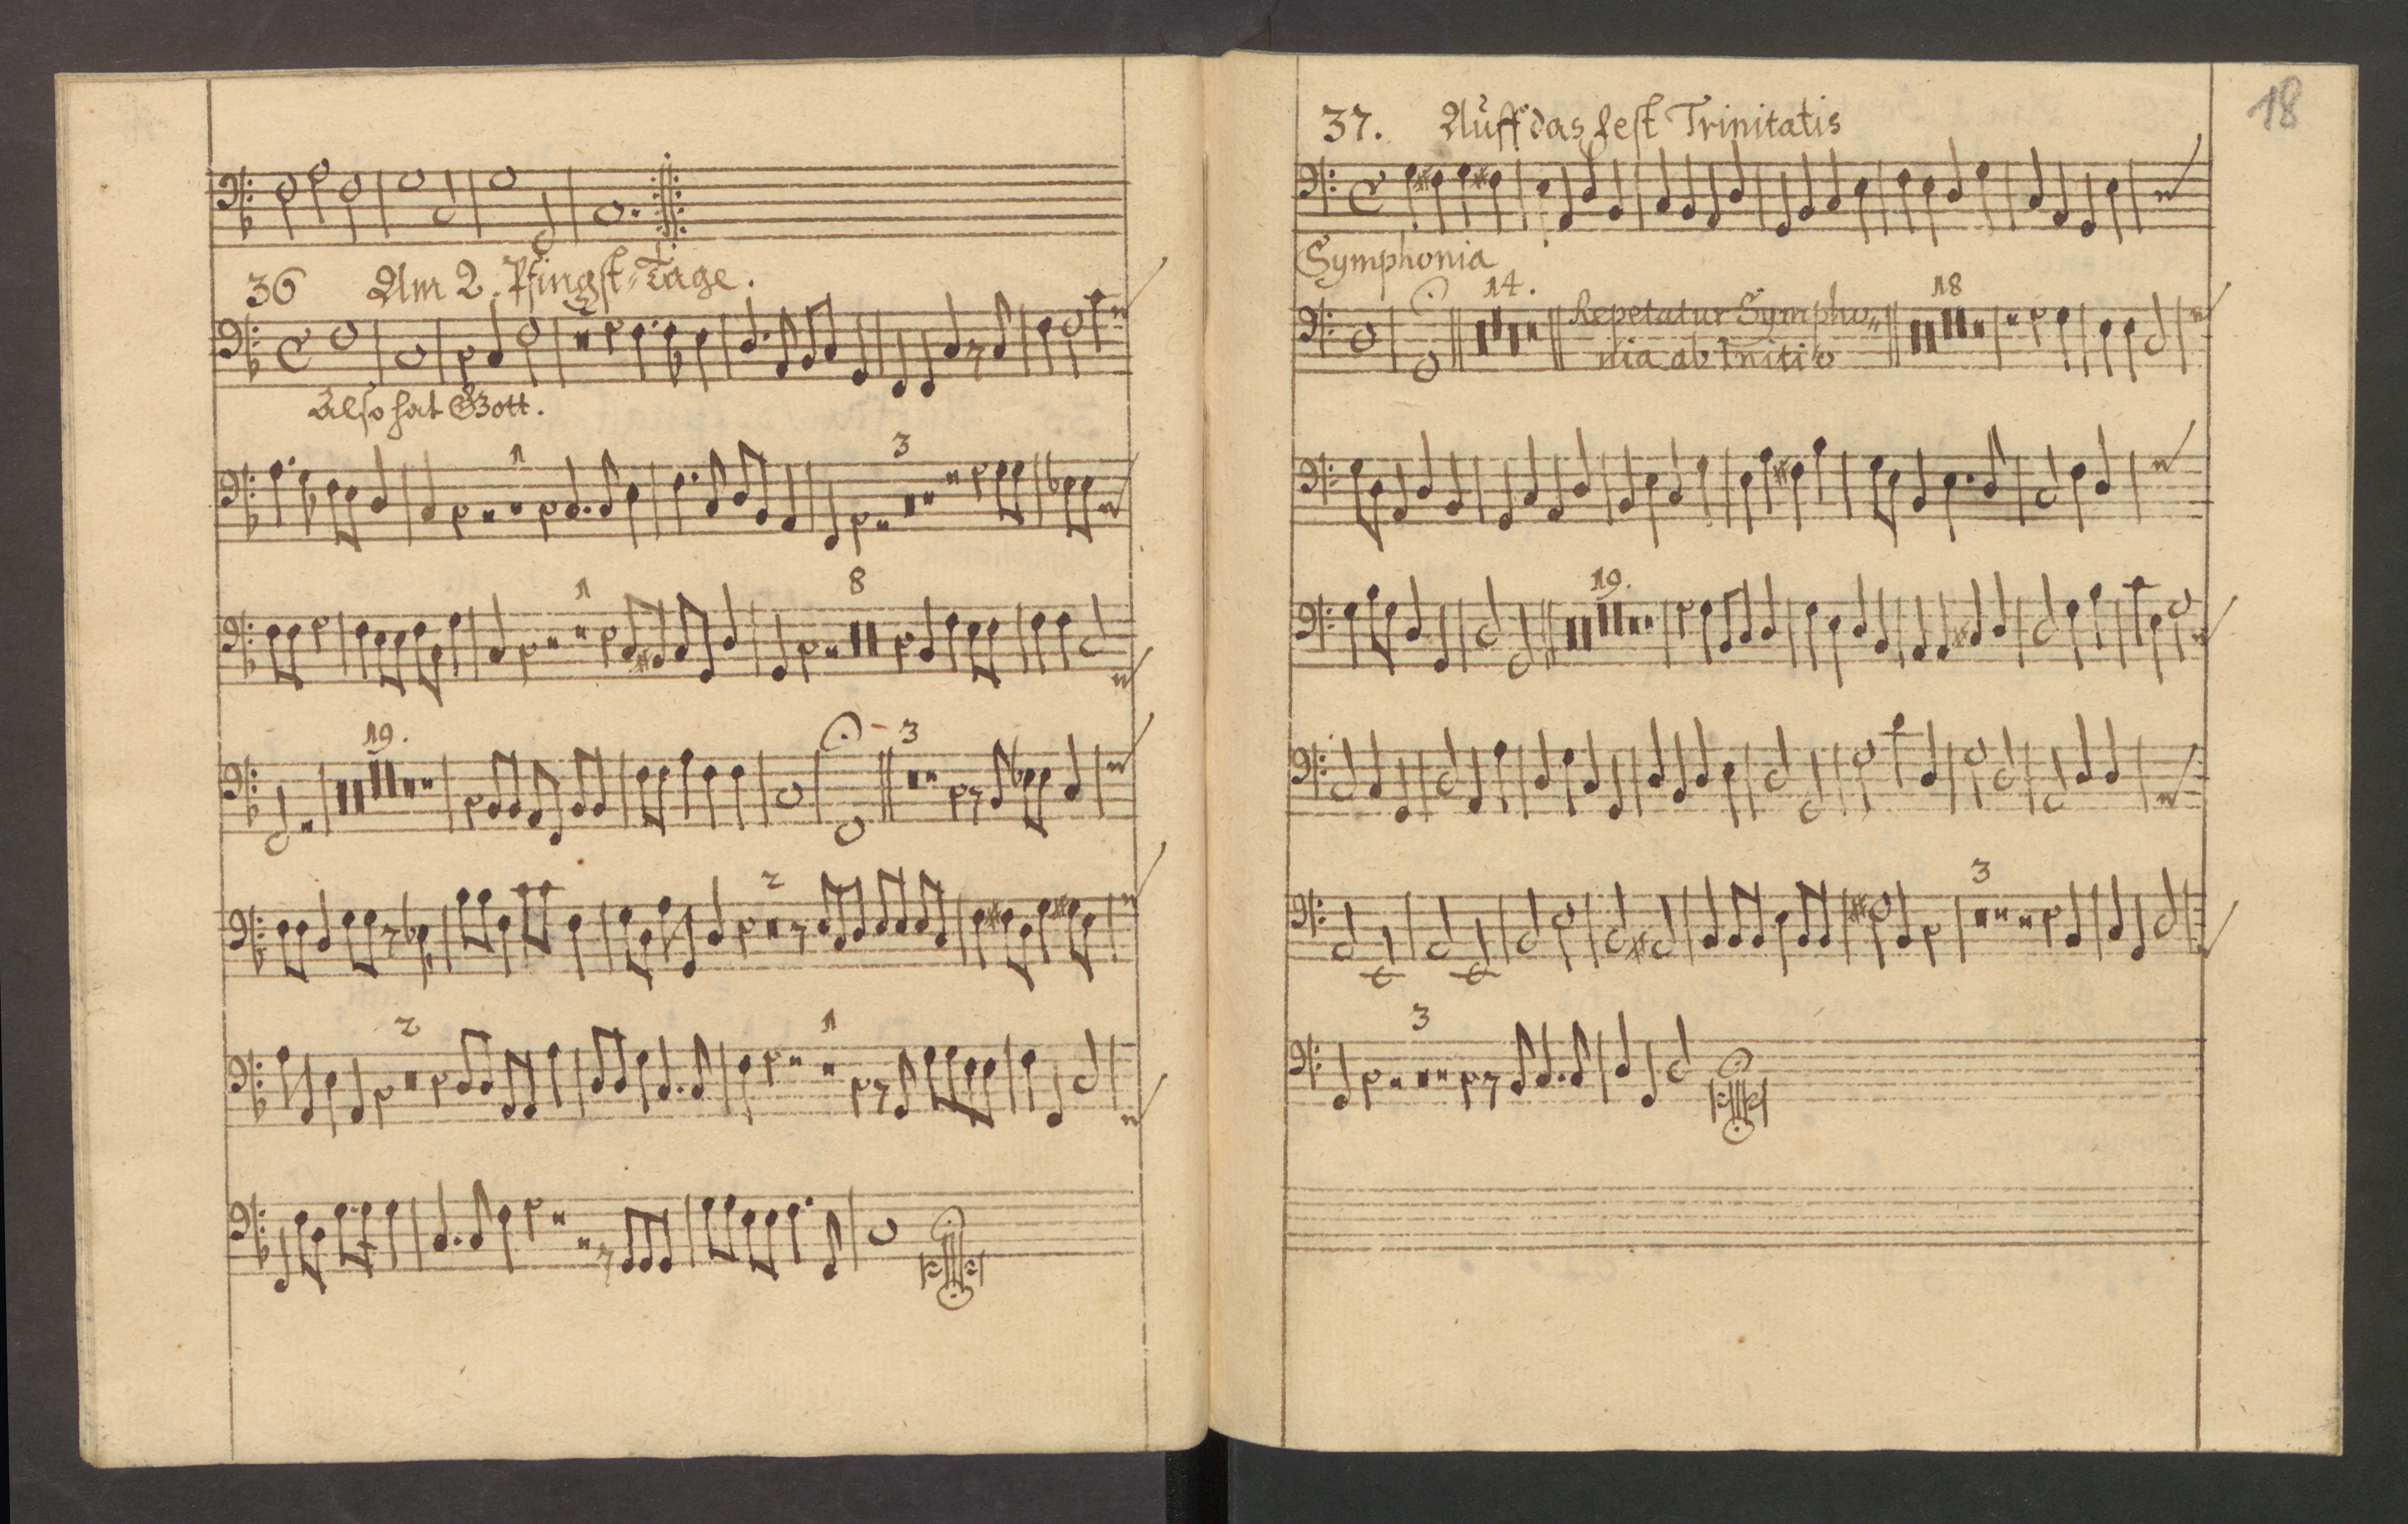 36 Am 2. Pfingst-Tage.
2
Also hat Gott.
1 3
1 8
19. 3
2
2 1
18
37. Auff das fest Trinitatis
Symphonia
14. Repetatur Sympho„ 18
nia ab Initio
19.
3
3